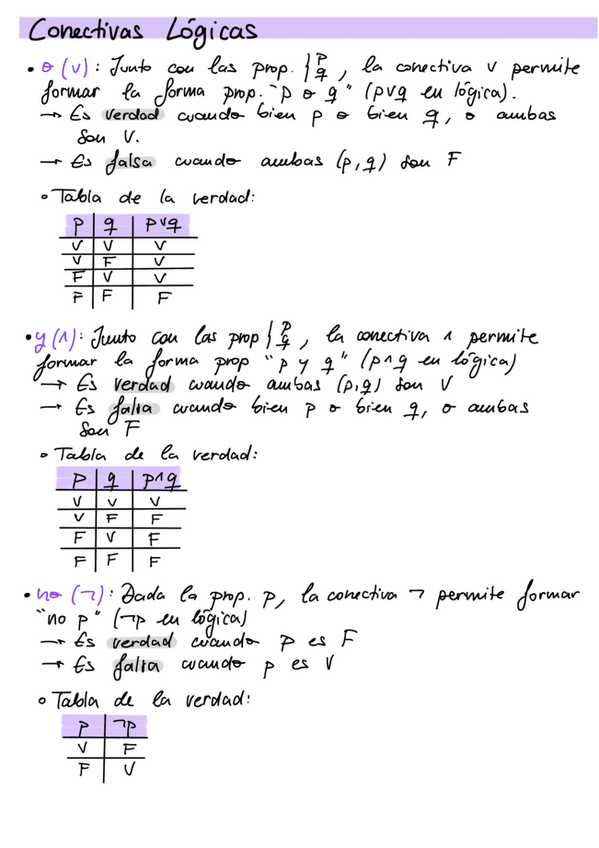 Conectivas Lógicas
• o (∨): Junto con las prop. } p q, la conectiva ∨ permite
formar la forma prop. "p o q" (p∨q en lógica).
→ Es verdad cuando bien p o bien q, o ambas
son V.
→ Es falsa cuando ambas (p,q) son F
◦ Tabla de la verdad:
p | q | p∨q
V | V | V
V | F | V
F | V | V
F | F | F
• y (∧): Junto con las prop } p q, la conectiva ∧ permite
formar la forma prop "p y q" (p∧q en lógica)
→ Es verdad cuando ambas (p,q) son V
→ Es falsa cuando bien p o bien q, o ambas
son F
◦ Tabla de la verdad:
p | q | p∧q
V | V | V
V | F | F
F | V | F
F | F | F
• no (¬): Dada la prop. p, la conectiva ¬ permite formar
"no p" (¬p en lógica)
→ Es verdad cuando p es F
→ Es falsa cuando p es V
◦ Tabla de la verdad:
p | ¬p
V | F
F | V